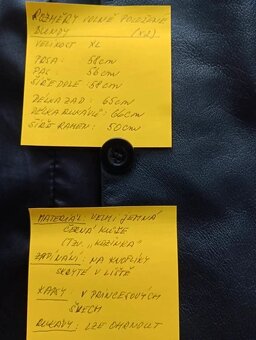 ROZMĚRY VOLNĚ POLOŽENÉ
BUNDY (x2)
VELIKOST XL
PRSA: 58cm
PAS: 56cm
ŠÍŘE DOLE: 58cm
DÉLKA ZAD: 65cm
DÉLKA RUKÁVŮ: 66cm
ŠÍŘE RAMEN: 50cm
MATERIÁL: VELMI JEMNÁ
ČERNÁ KŮŽE
(TZV. „KOZINKA"
ZAPÍNÁNÍ: NA KNOFLÍKY
SKRYTÉ V LIŠTĚ
KAPSY: V PRINCESOVÝCH
ŠVECH
RUKÁVY: LZE OHRNOUT